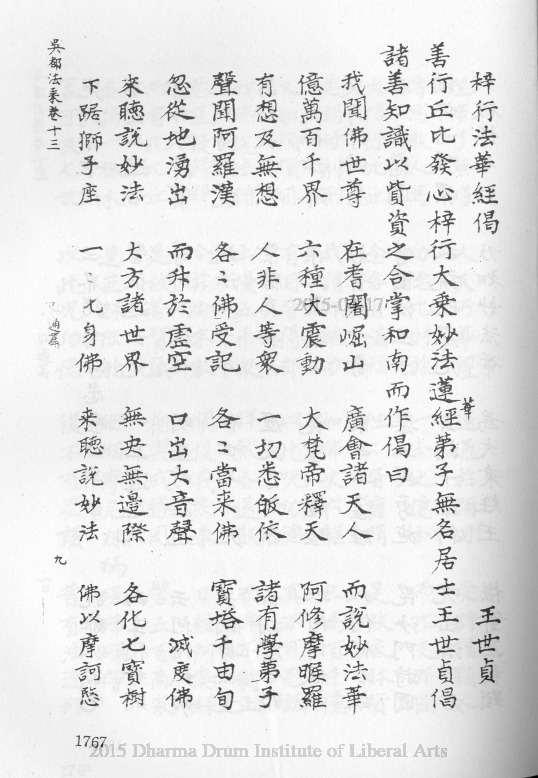 吳都法乘卷十三
梓行法華經偈 王世貞
善行丘比發心梓行大乘妙法蓮華經弟子無名居士王世貞倡
諸善知識以貲資之合掌和南而作偈曰
我聞佛世尊 在耆闍崛山 廣會諸天人 而說妙法華
億萬百千界 六種大震動 大梵帝釋天 阿修摩睺羅
有想及無想 人非人等衆 一切悉皈依 諸有學弟子
聲聞阿羅漢 各各佛受記 各各當来佛 寶塔千由旬
忽從地湧出 而升於虛空 口出大音聲 滅度佛
來聽說妙法 十方諸世界 無央無邊際 各化七寶樹
下踞獅子座 一一化身佛 来聽說妙法 佛以摩訶愍
九
1767
2015 Dharma Drum Institute of Liberal Arts